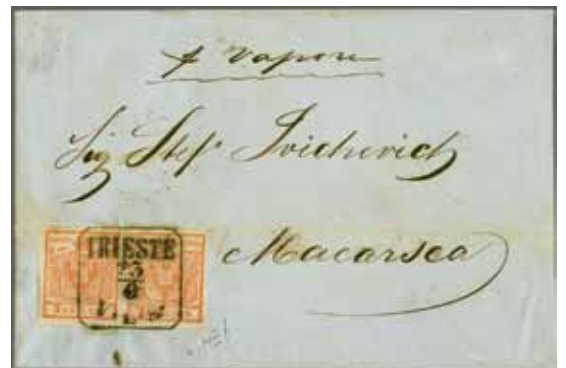 p vapore
Sig Stef° Ivichevich
Macarsca
TRIESTE
23
6